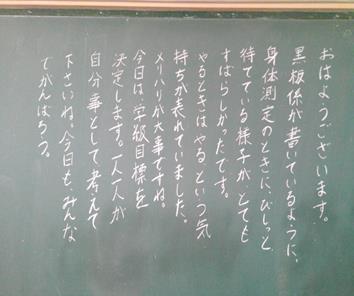 おはようございます。
黒板係が書いているように、
身体測定のときに、びしっと
待てている様子が、とても
すばらしかったです。
やるときはやるという気
持ちが表れていました。
メリハリが大事ですね。
今日は、学級目標を
決定します。一人一人が
自分事として考えて
下さいね。今日も、みんな
でがんばろう。